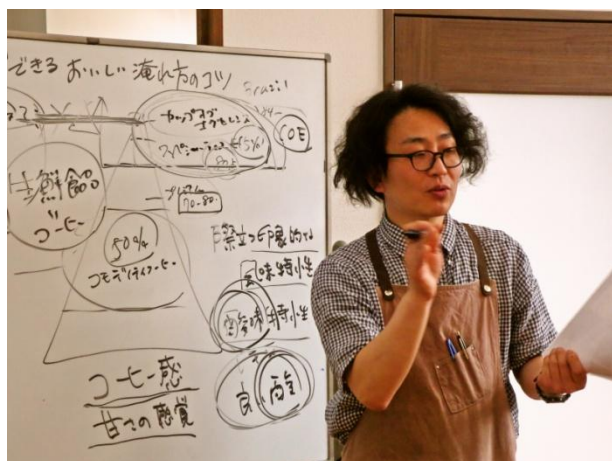 できるおいしい淹れ方のコツ
Brazil
カップオブ
エクセレンス
COE
スペシャルティ
5%
80点
生鮮食品
コーヒー
70-80
50%
コモディティコーヒー
際立つ印象的な
味特性
酸味特性
コーヒー感
良い酸
甘さの感覚